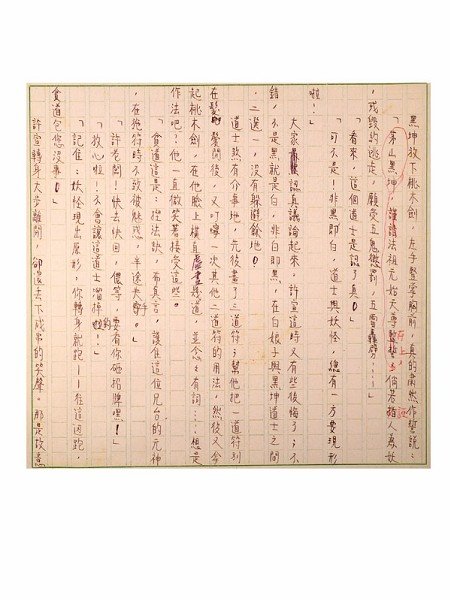 黑坤放下桃木劍，左手豎掌胸前，真的肅然作誓說：
「茅山黑坤，謹請法祖元始天尊在上，倘若指人為妖
，殘毀的逃走，願受五鬼懲罰，五雷轟劈……」
「看來，這個道士是認了真。」
「可不是！非黑即白，道士與妖怪，總有一方要現形
啦！」
大家認真議論起來，許宣這時又有些後悔了；不
錯，不是黑就是白，非白即黑，在白娘子與黑坤道士之間
，二選一，沒有躲避餘地。
道士煞有介事地，先後畫了三道符；幫他把一道符別
在髮間後，又叮嚀一次其他二道符的用法，然後又拿
起桃木劍，在他臉上橫直虛畫幾道，並念念有詞……想是
作法吧？他一直微笑著接受這些。
「貧道這是：捏法訣，希真言，護住這位兄台的元神
，在施符時不致被魅惑，半途失手。」
「許老闆！快去快回，儂等，要看你砸招牌嘿！」
「放心啦！不會讓這道士溜掉的！」
「記住：妖怪現出原形，你轉身就跑——往這邊跑，
貧道包您沒事。」
許宣轉身大步離開，卻退去下成串的笑聲。那是故意